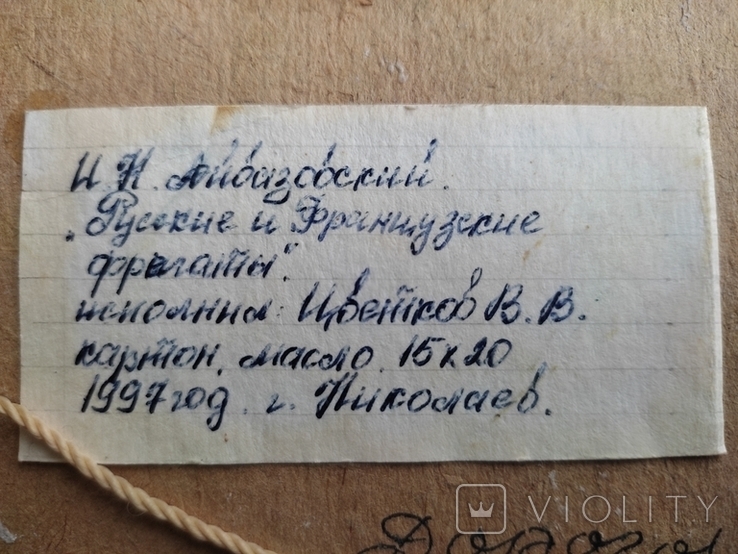 И. Н. Айвазовский.
„Русские и Французские
фрегаты".
исполнил: Цветков В. В.
картон, масло, 15х20
1997 год. г. Николаев.
VIOLITY